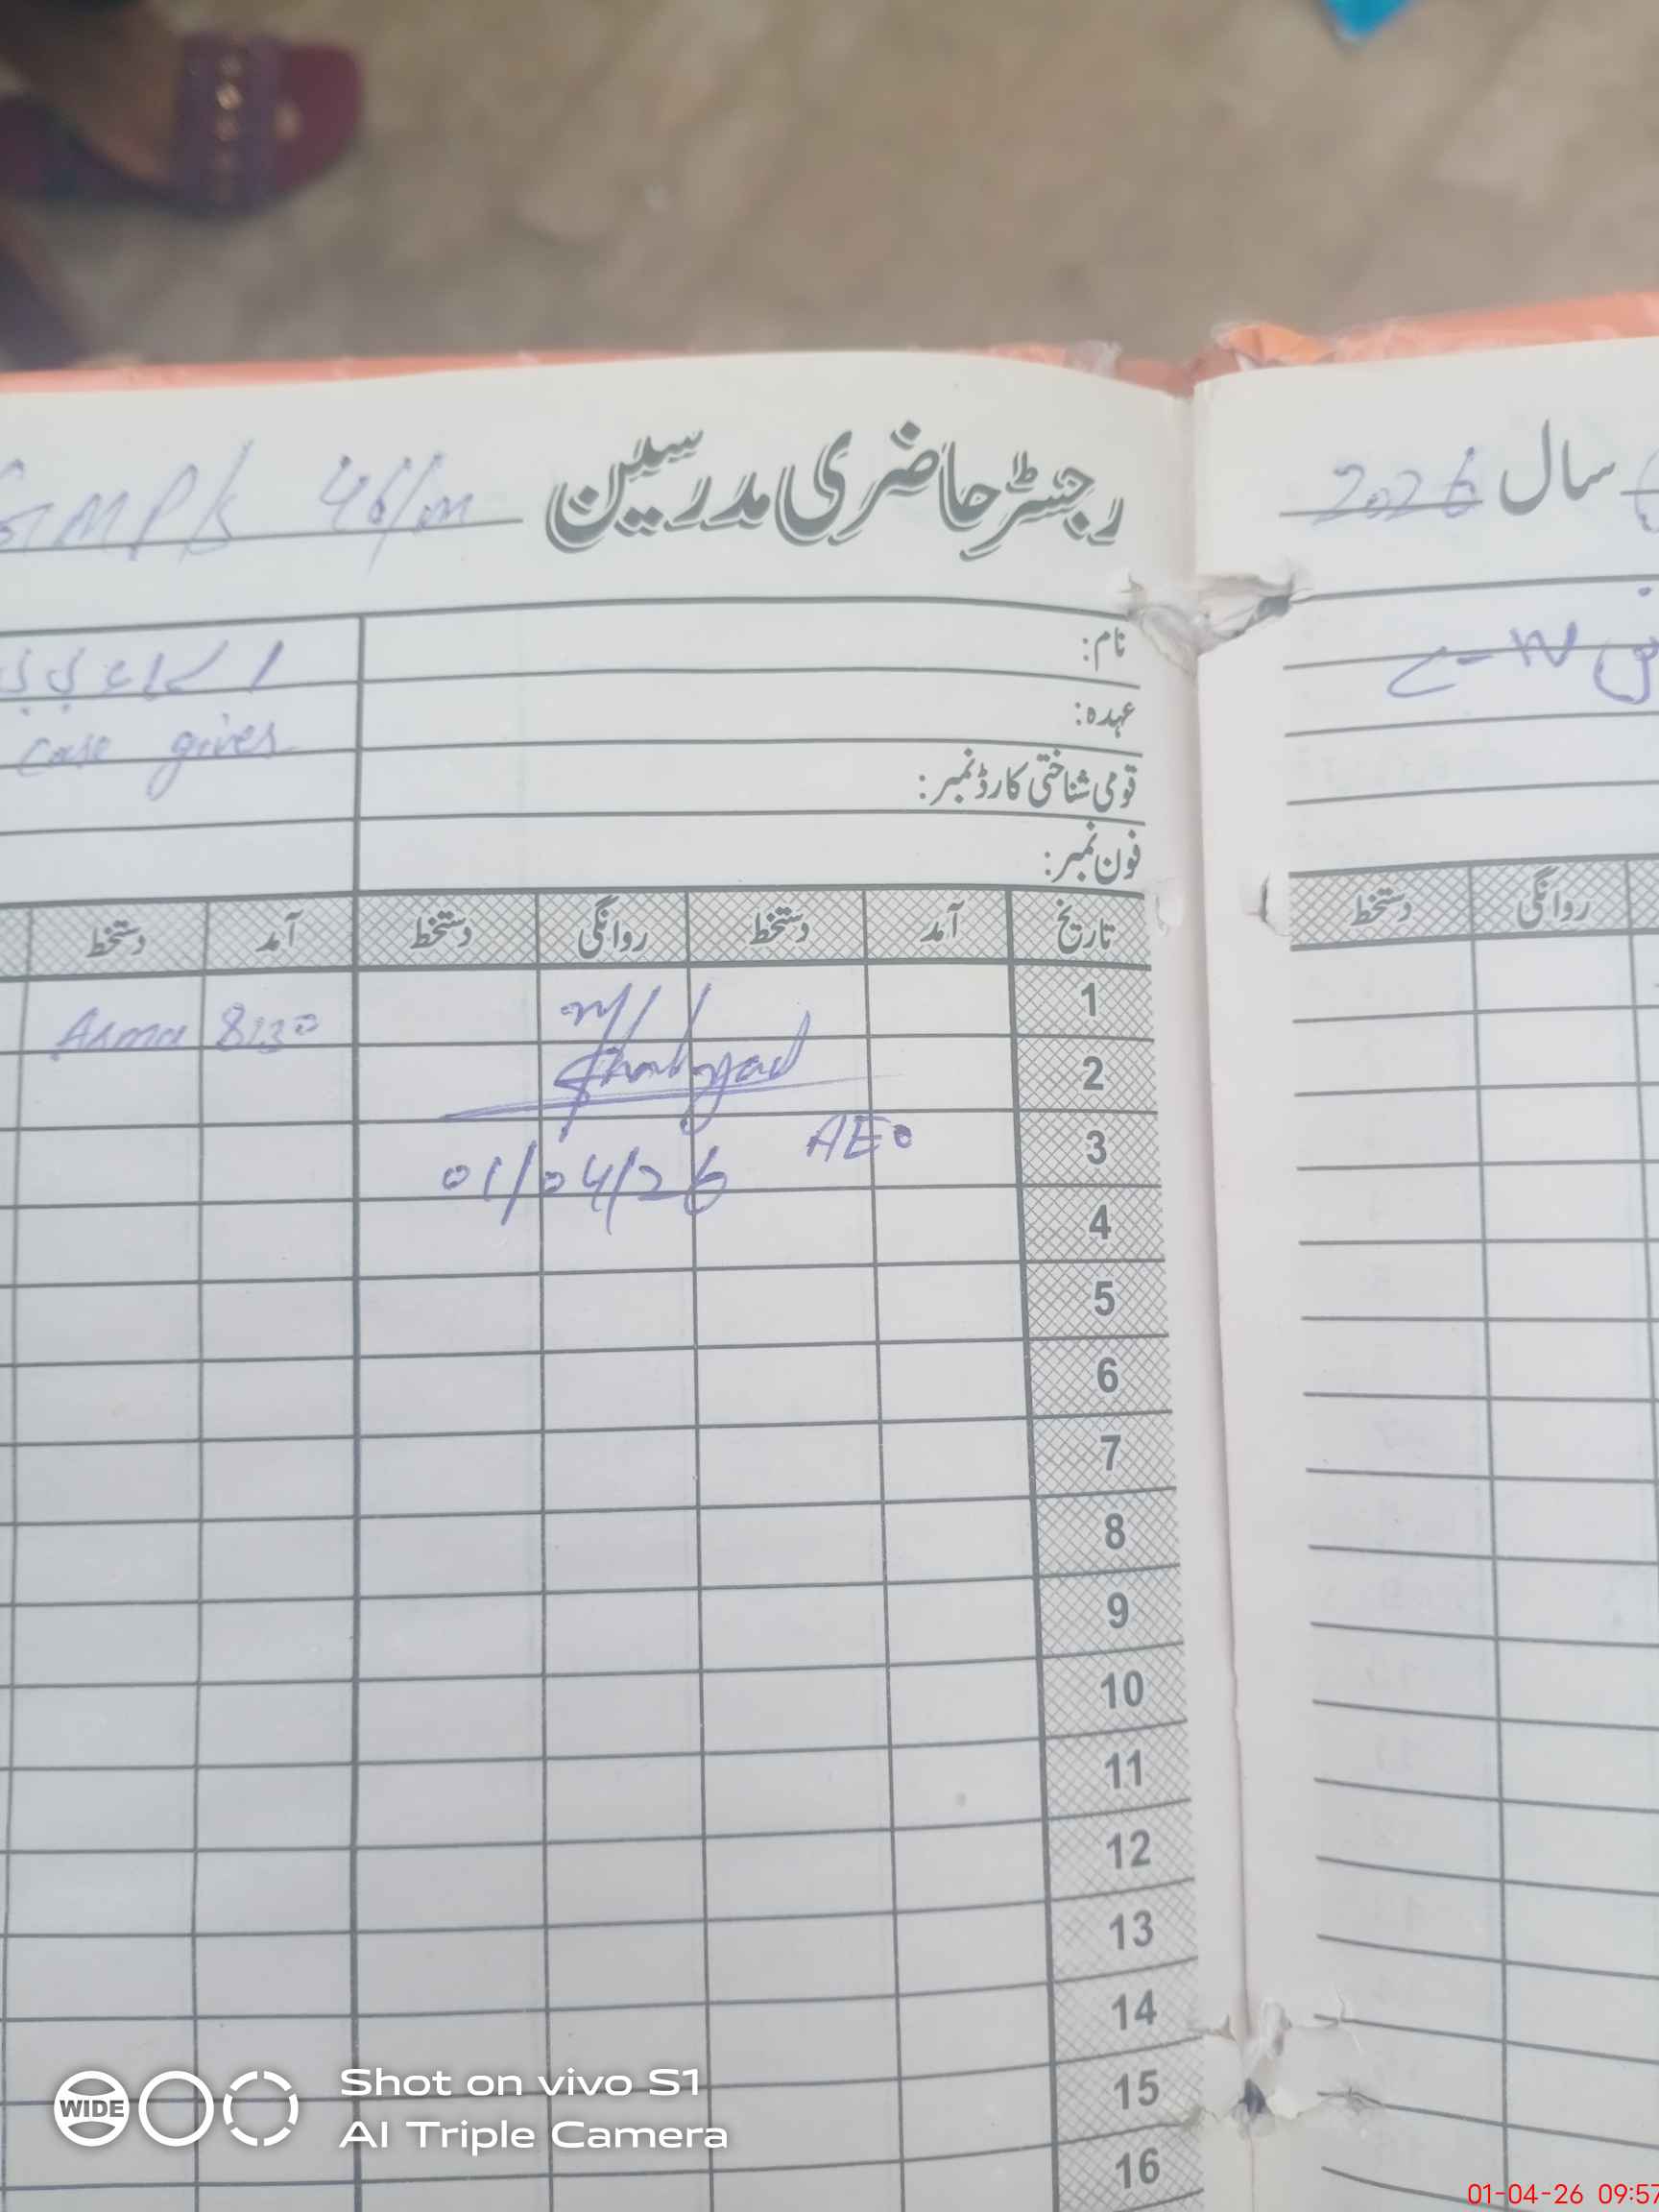 GMPS 46/m رجسٹر حاضری مدرسین
سال 2026
نام:
عہدہ:
care giver
قومی شناختی کارڈ نمبر:
فون نمبر:
تاریخ آمد دستخط روانگی دستخط آمد دستخط
روانگی دستخط
1 8:30 Asma
2
3 AEO
01/04/26
4
5
6
7
8
9
10
11
12
13
14
15
16
WIDE
Shot on vivo S1
AI Triple Camera
01-04-26 09:57